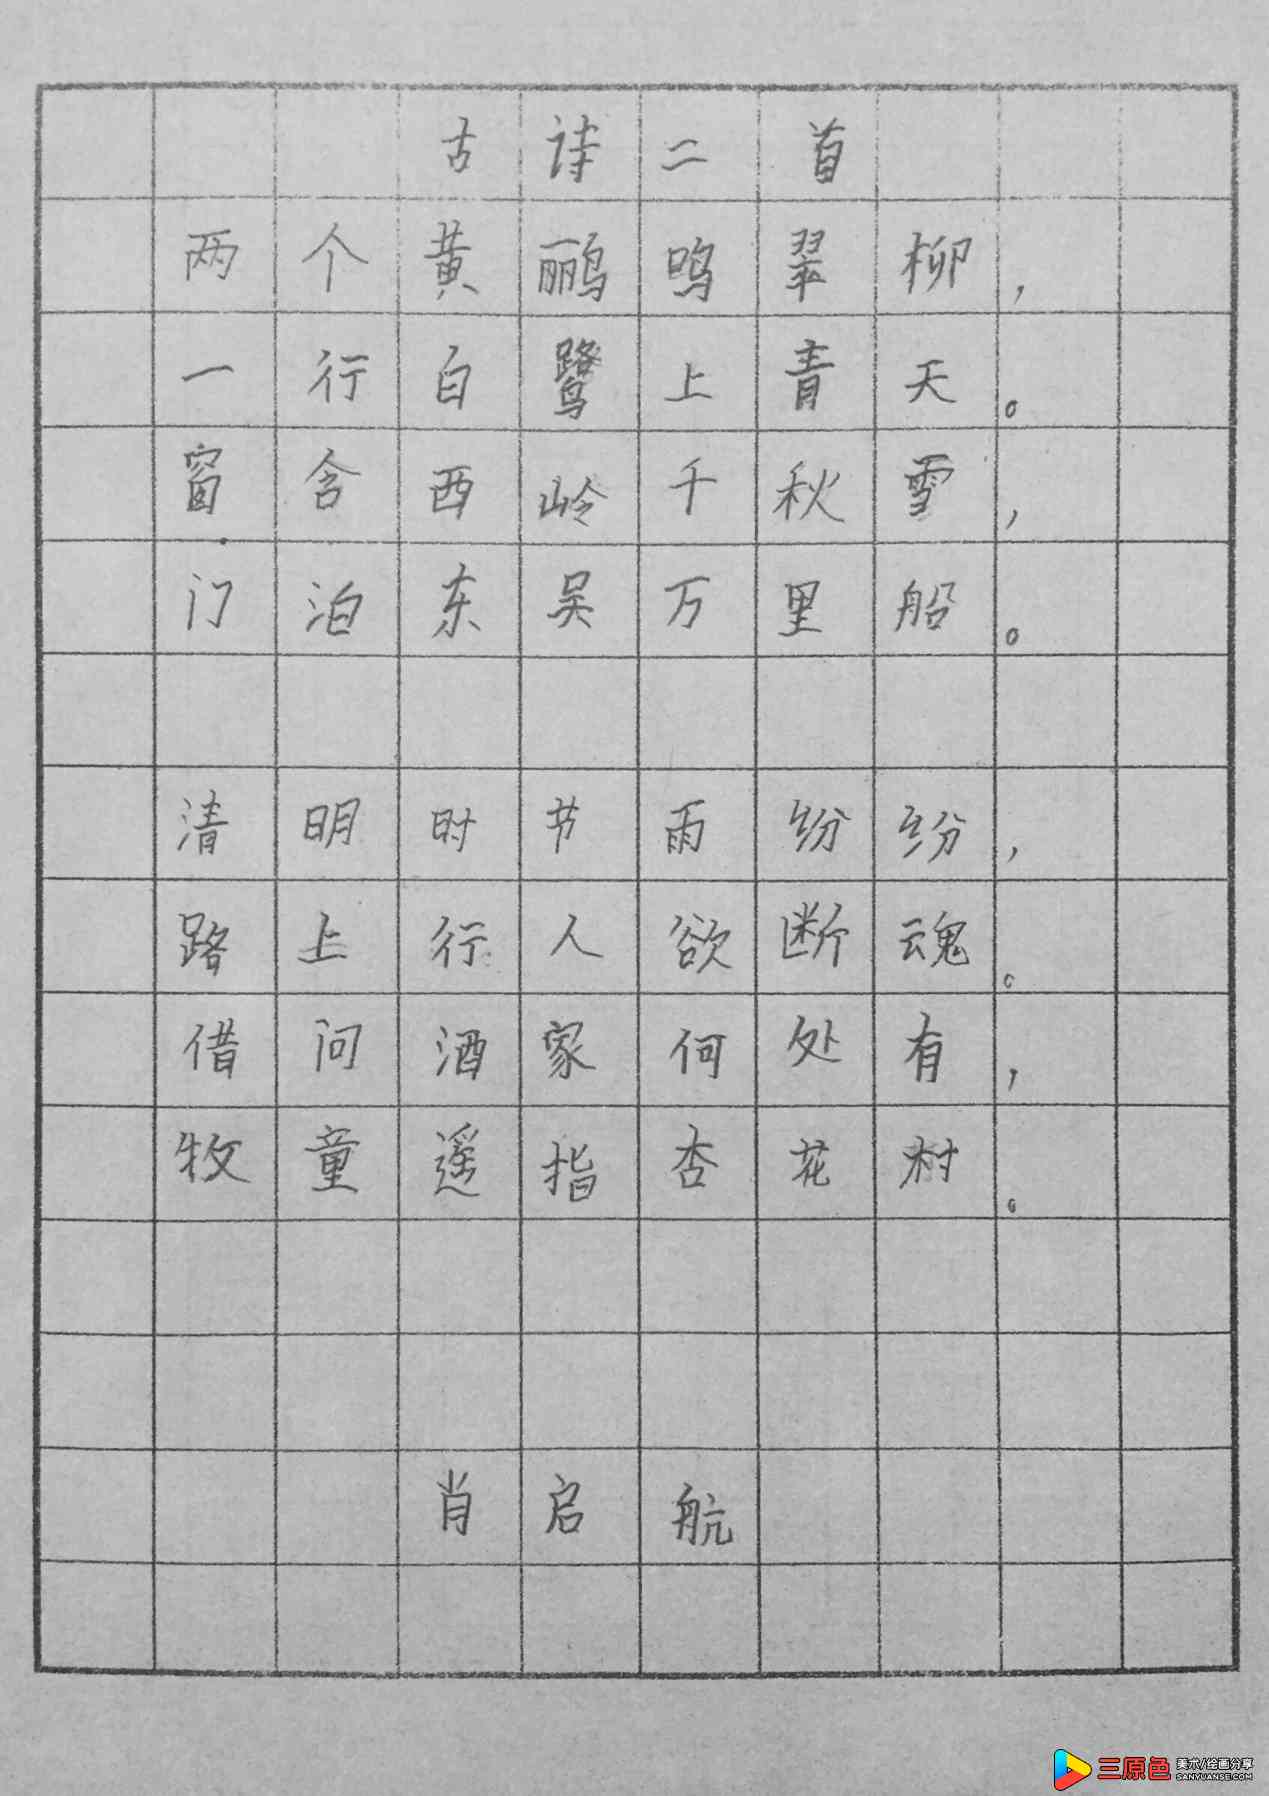 古诗二首
两个黄鹂鸣翠柳，
一行白鹭上青天。
窗含西岭千秋雪，
门泊东吴万里船。
清明时节雨纷纷，
路上行人欲断魂。
借问酒家何处有，
牧童遥指杏花村。
肖启航
三原色 美术/绘画分享
SANYUANSE.COM